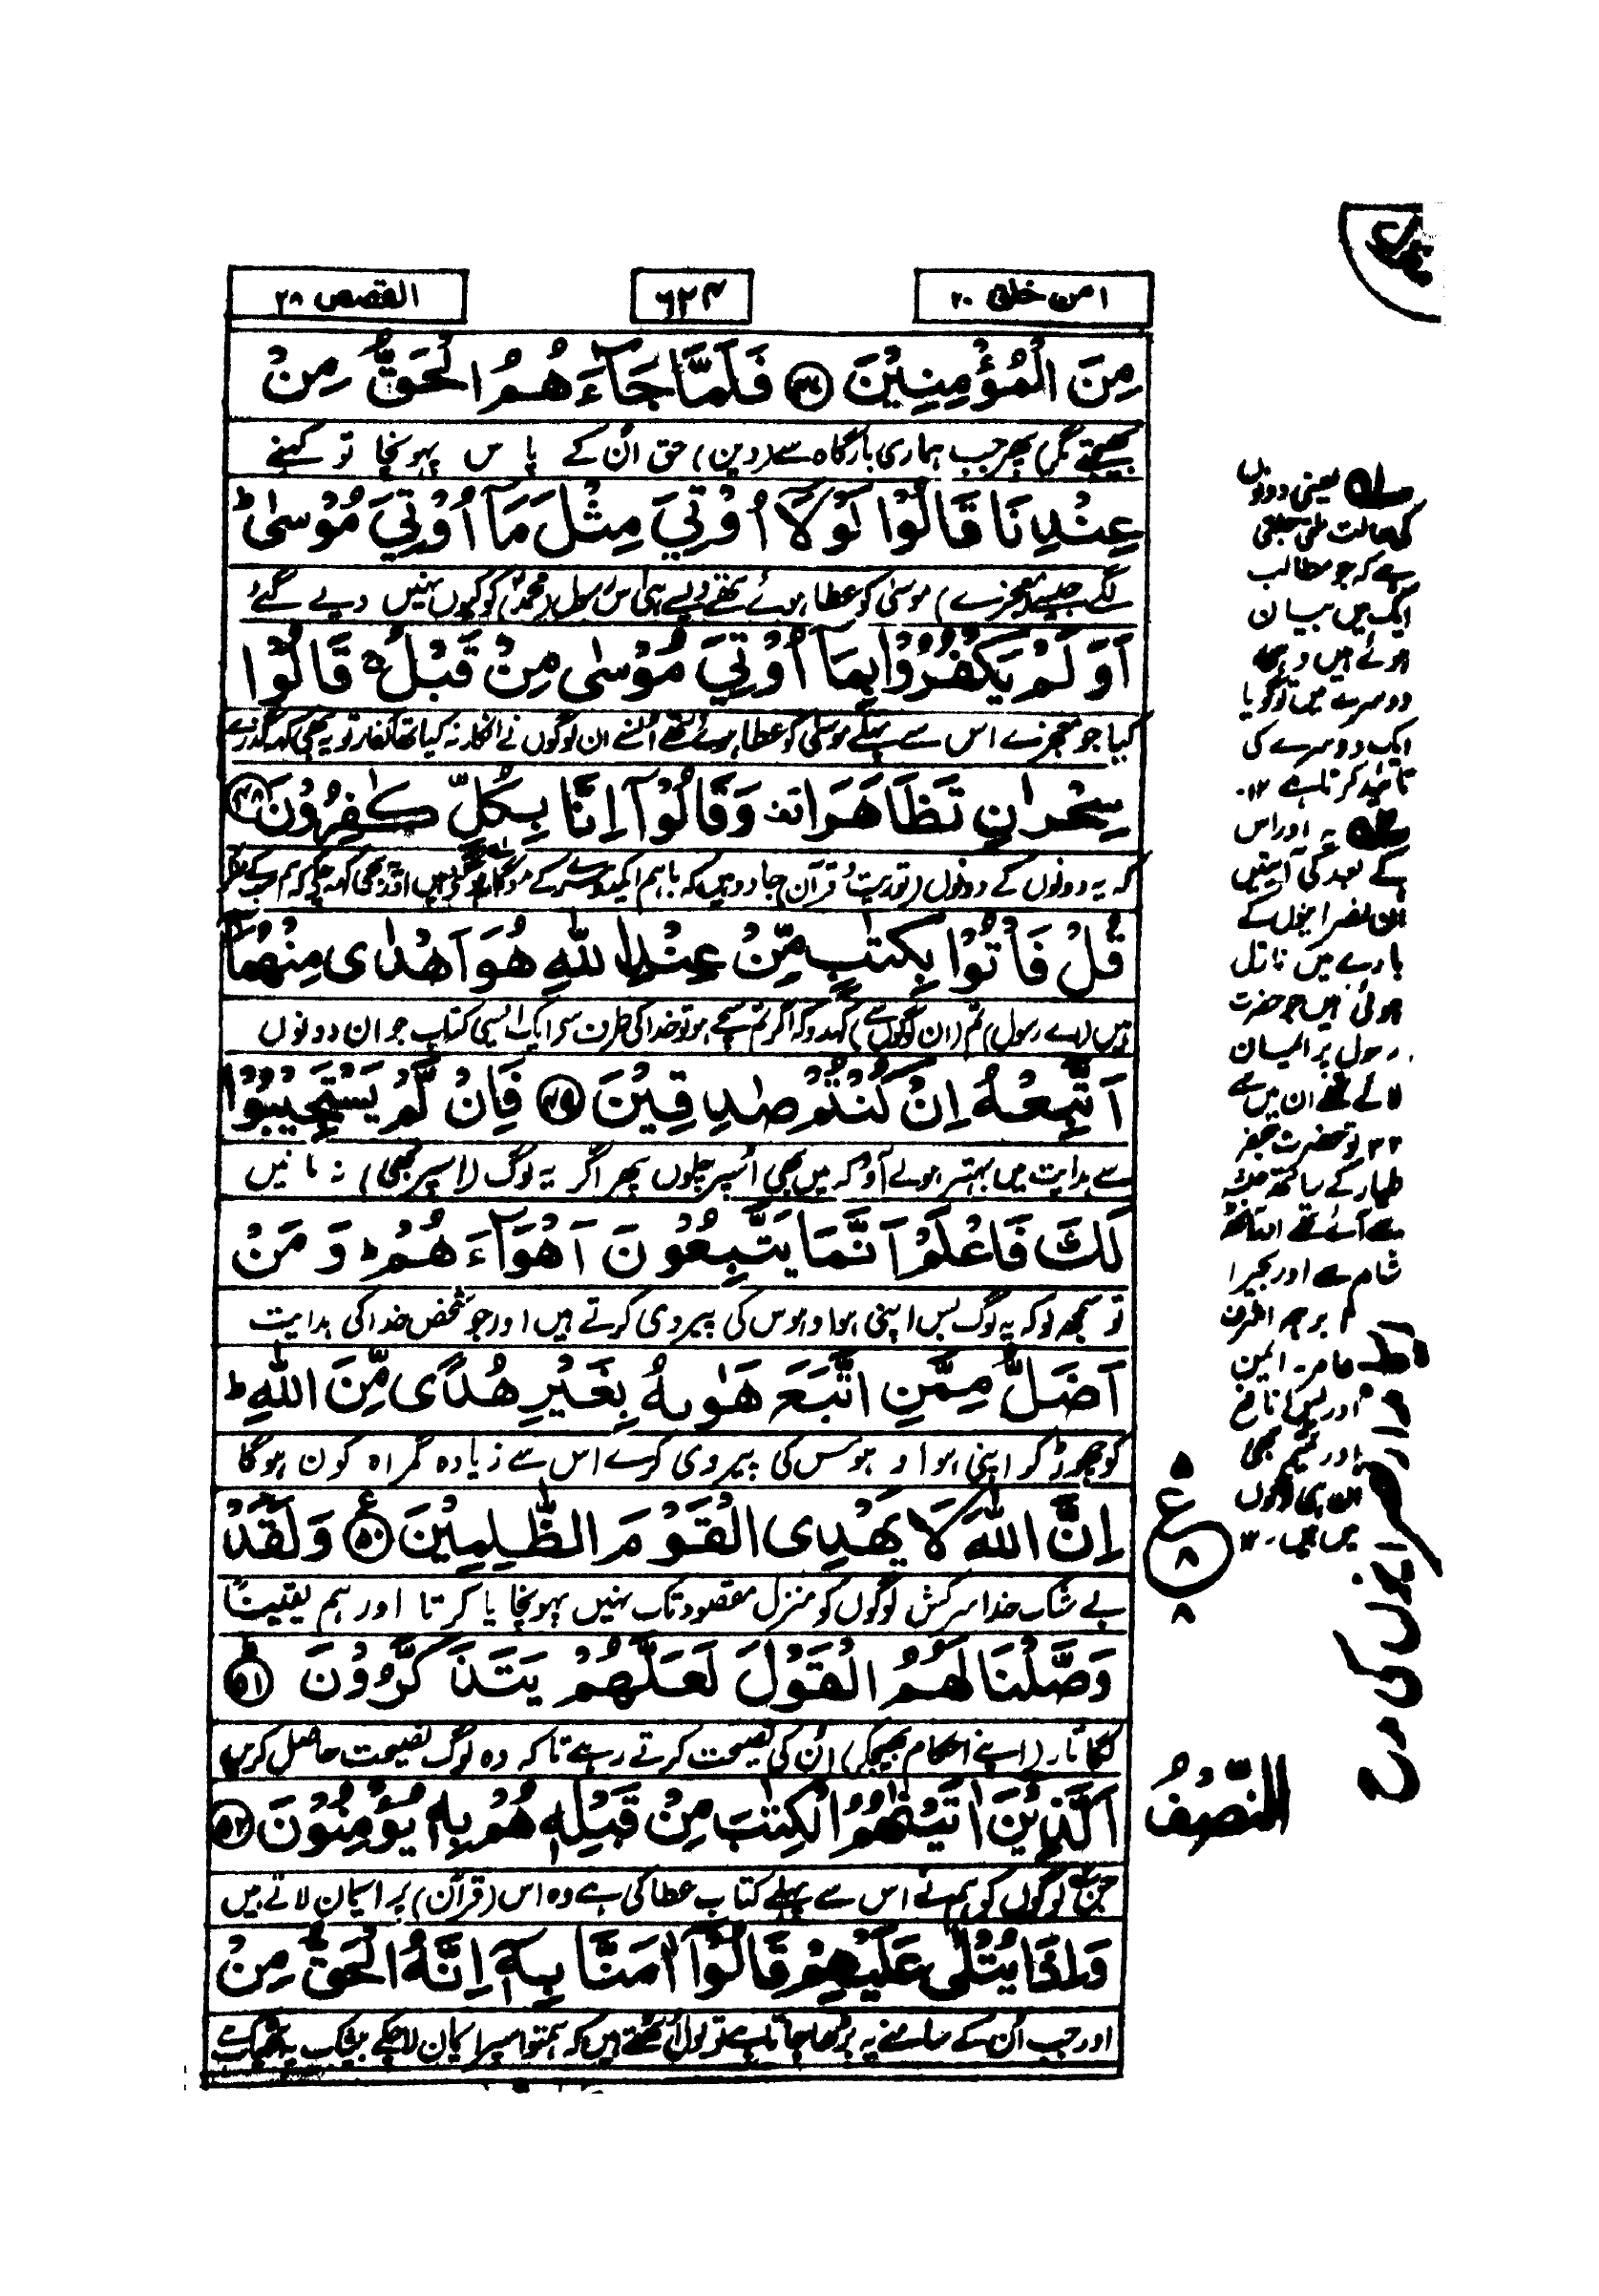 امن خلق ۲۰
۶۲۴
القصص ۲۸
مِنَ الْمُؤْمِنِيْنَ ﴿۴۷﴾ فَلَمَّا جَآءَهُمُ الْحَقُّ مِنْ
بھیجتے مگر) پھر جب ہماری بارگاہ سے (دین) حق اُن کے پاس پہونچا تو کہنے
عِنْدِنَا قَالُوْا لَوْلَاۤ اُوْتِيَ مِثْلَ مَاۤ اُوْتِيَ مُوْسٰى ؕ
لگے جیسے (معجزے) موسیٰ کو عطا ہوئے تھے ویسے ہی اس رسول (محمدؐ) کو کیوں نہیں دیے گئے
اَوَلَمْ يَكْفُرُوْا بِمَاۤ اُوْتِيَ مُوْسٰى مِنْ قَبْلُ ۚ قَالُوْا
کیا جو معجزے اس سے پہلے موسیٰ کو عطا ہوئے تھے اُن سے ان لوگوں نے انکار نہ کیا تھا کفار تو یہ بھی کہہ گذرے
سِحْرٰنِ تَظَاهَرَا ۥ وَقَالُوْۤا اِنَّا بِكُلٍّ كٰفِرُوْنَ ﴿۴۸﴾
کہ یہ دونوں کے دونوں (توریت و قرآن) جادو ہیں کہ باہم ایک دوسرے کے مددگار ہو گئے ہیں اور یہ بھی کہہ چکے کہ ہم سب کے منکر
قُلْ فَاْتُوْا بِكِتٰبٍ مِّنْ عِنْدِ اللّٰهِ هُوَ اَهْدٰى مِنْهُمَاۤ
ہیں (اے رسول) تم (ان لوگوں سے) کہدو کہ اگر تم سچے ہو تو خدا کی طرف سے ایک ایسی کتاب جو ان دونوں
اَتَّبِعْهُ اِنْ كُنْتُمْ صٰدِقِيْنَ ﴿۴۹﴾ فَاِنْ لَّمْ يَسْتَجِيْبُوْا
سے ہدایت میں بہتر ہو لے آؤ کہ میں بھی اُسپر چلوں پھر اگر یہ لوگ (اسپر بھی) نہ مانیں
لَكَ فَاعْلَمْ اَنَّمَا يَتَّبِعُوْنَ اَهْوَآءَهُمْ ؕ وَمَنْ
تو سمجھ لو کہ یہ لوگ بس اپنی ہوا و ہوس کی پیروی کرتے ہیں اور جو شخص خدا کی ہدایت
اَضَلُّ مِمَّنِ اتَّبَعَ هَوٰىهُ بِغَيْرِ هُدًى مِّنَ اللّٰهِ ؕ
کو چھوڑ کر اپنی ہوا و ہوس کی پیروی کرے اس سے زیادہ گمراہ کون ہوگا
اِنَّ اللّٰهَ لَا يَهْدِى الْقَوْمَ الظّٰلِمِيْنَ ﴿۵۰﴾ وَلَقَدْ
بے شک خدا سرکش لوگوں کو منزل مقصود تک نہیں پہونچایا کرتا اور ہم یقیناً
وَصَّلْنَا لَهُمُ الْقَوْلَ لَعَلَّهُمْ يَتَذَكَّرُوْنَ ﴿۵۱﴾
لگاتار (اپنے احکام بھیجکر) اُن کی نصیحت کرتے رہے تاکہ وہ لوگ نصیحت حاصل کریں
اَلَّذِيْنَ اٰتَيْنٰهُمُ الْكِتٰبَ مِنْ قَبْلِهٖ هُمْ بِهٖ يُؤْمِنُوْنَ ﴿۵۲﴾
جن لوگوں کو ہم نے اس سے پہلے کتاب عطا کی ہے وہ اس (قرآن) پر ایمان لاتے ہیں
وَاِذَا يُتْلٰى عَلَيْهِمْ قَالُوْۤا اٰمَنَّا بِهٖۤ اِنَّهُ الْحَقُّ مِنْ
اور جب اُن کے سامنے یہ پڑھا جاتا ہے تو بول اُٹھتے ہیں کہ ہم تو اسپر ایمان لا چکے بیشک یہ ٹھیک ہے
ل یعنی دونوں
کی حالت ملتی جلتی
ہے کہ جو مطالب
ایک میں بیان
ہوئے ہیں وہی
دوسرے میں تو گویا
ایک دوسرے کی
تائید کرتا ہے ۱۲
یہ اور اس
کے بعد کی آیتیں
ان نصرانیوں کے
بارے میں نازل
ہوئی ہیں جو حضرت
رسول پر ایمان
لائے تھے ان میں سے
۳۲ تو حضرت جعفر
طیار کے ساتھ حبشہ
سے آئے تھے اور آٹھ
شام سے اور بحیرا
ابرہہ اشرف
عامر ایمن
ادریس نافع
اور تمیم بھی
ان ہی لوگوں
میں ہیں ۱۲
ع
۸
۸
النِّصْفُ